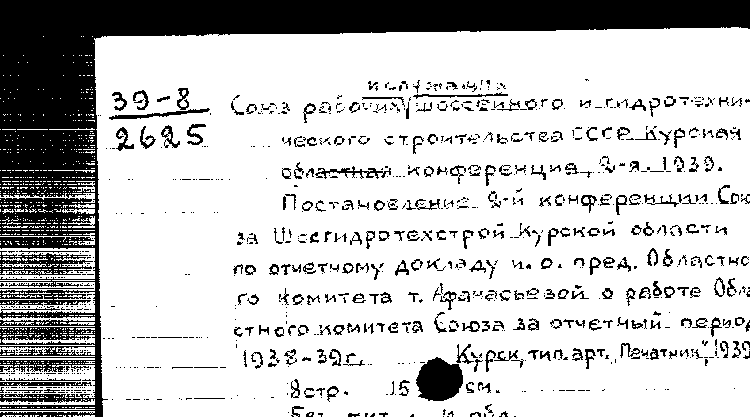 и служащих
39-8 Союз рабочих шоссейного и гидротехни-
2625 ческого строительства СССР Курская
областная конференция, 2-я. 1939.
Постановление 2-й конференции Сою
за Шосгидротехстрой Курской области
по отчетному докладу и. о. пред. Областно
го комитета т. Афанасьевой о работе Обла
стного комитета Союза за отчетный период
1938-39г. Курск, тип. арт. „Печатник", 1939
8стр. 15 см.
Без тит. л. и обл.